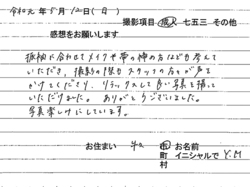 令和元年5月12日(日)
撮影項目 成人 七五三 その他
感想をお願いします
振袖に合わせてメイクや帯の柄の方なども考えて
いただき、撮影の間もスタッフの方々が声を
かけてくださり、リラックスして良い写真を撮って
いただけました。ありがとうございました。
写真楽しみにしています。
お住まい 市 町 村
お名前 イニシャルで Y.M